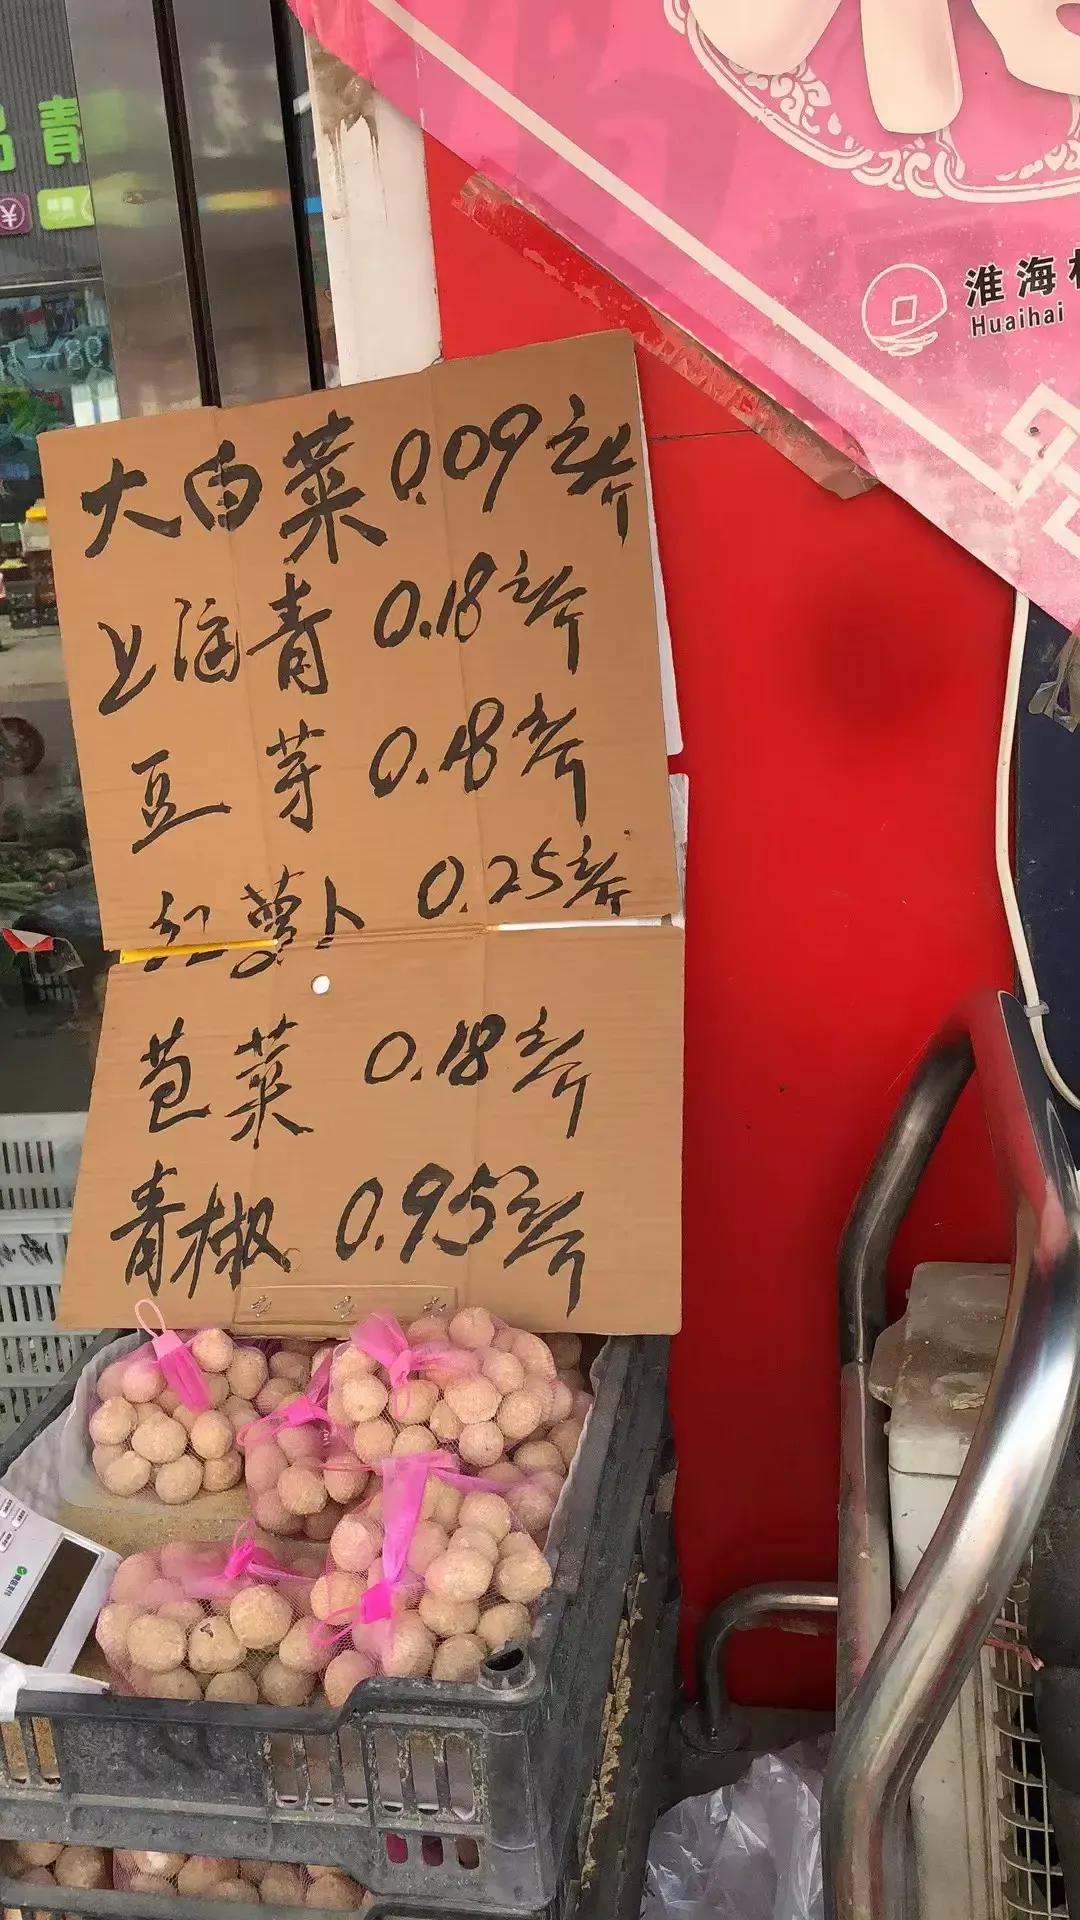 淮海
Huaihai
大白菜 0.09元/斤
上海青 0.18元/斤
豆芽 0.18元/斤
红萝卜 0.25元/斤
苞菜 0.18元/斤
青椒 0.95元/斤